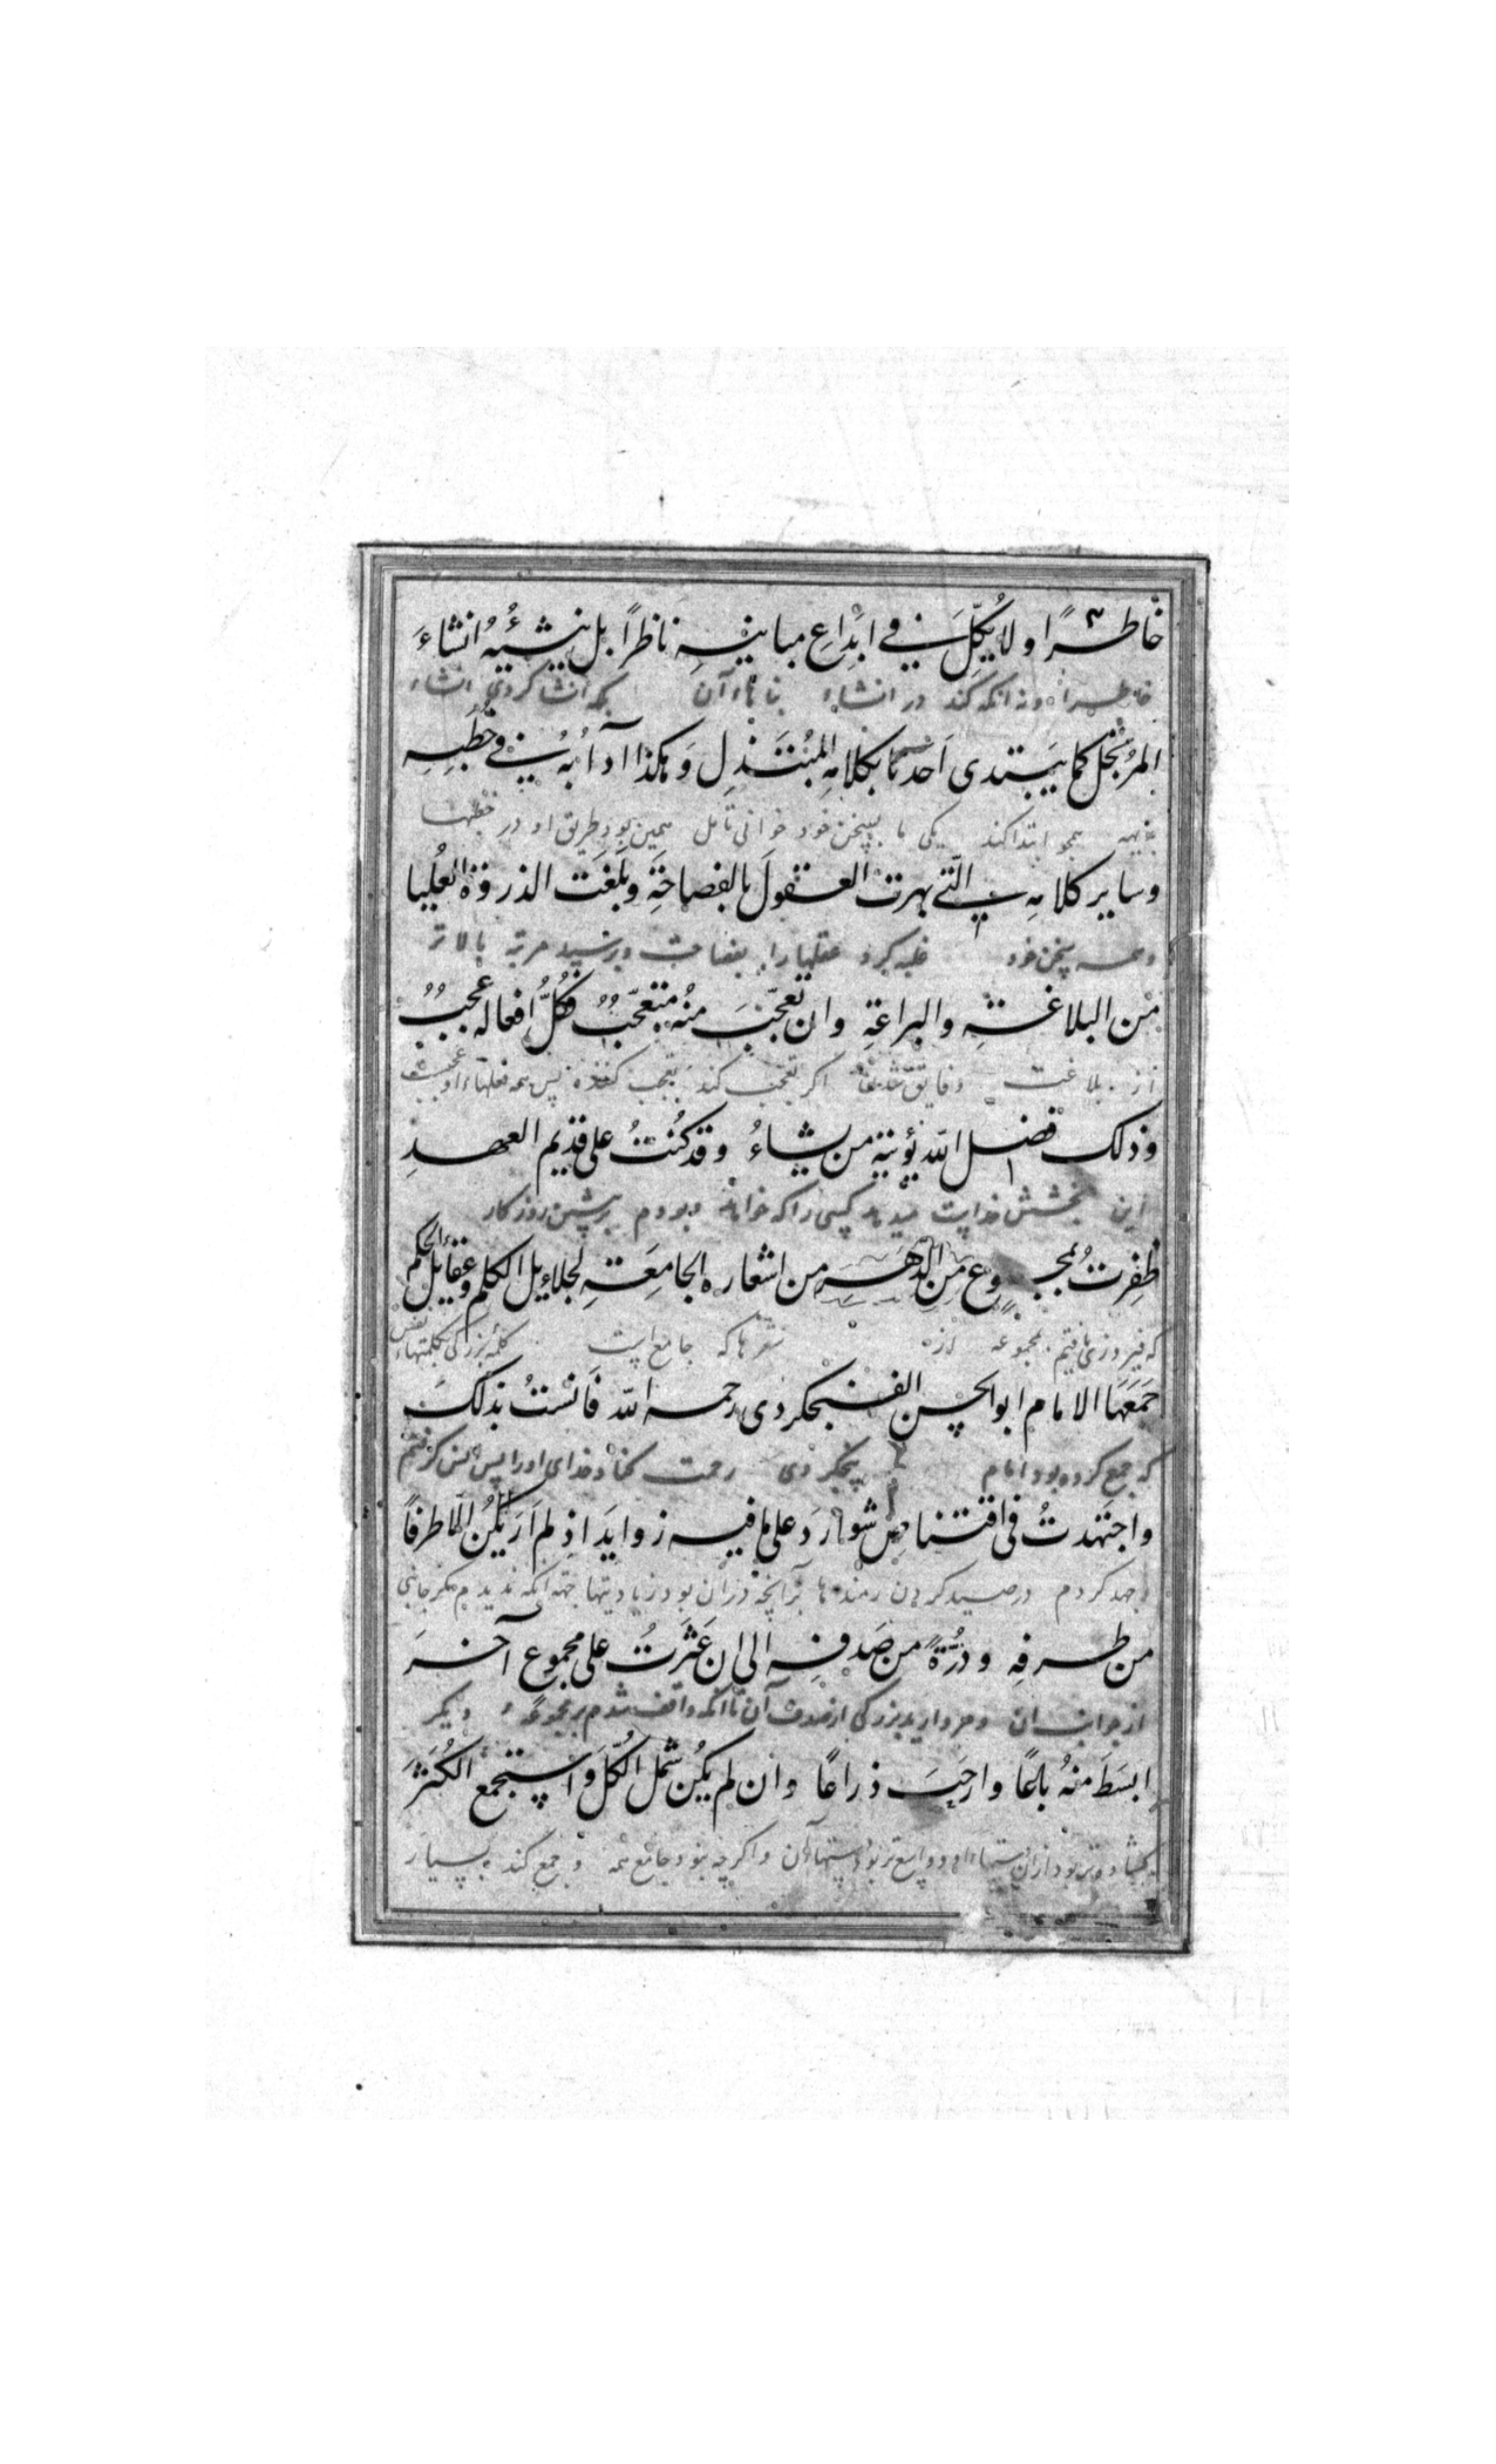 خاطرًا ولا يُكِلَّ في ابْداعِ مبانيهِ ناظرًا بل ينشئُهُ انشاءَ
خاطر را و نه آنکه کند در انشاء بناهاء آن بلکه انشا کردی انشاء
المرتجل كما يبتدى احدنا بكلامهِ المُبْتَذِلِ وَهكذا دأبُهُ في خُطَبِهِ
بدیهه همچو ابتدا کند یکی ما بسخن خود همین بود طریق او در خطبها
وساير كلامهِ الّتي بهرت العقولَ بالفصاحَةِ وبَلَغَت الذروةَ العُليا
وهمه سخن خود غلبه کرد عقلها را بفصاحت و برسید مرتبه بالاتر
من البلاغةِ والبراعةِ وان تعجّبَ منهُ متعجّبٌ فكُلُّ افعاله عجبٌ
از بلاغت اگر تعجب کند تعجب کننده پس همه فعلهاء او عجبست
وذلك فضل الله يؤتيهِ من يشاءُ وقد كُنْتُ على قديم العهدِ
این بخشش خداست میدهد کسی را که خواهد و بودم بر پیشین روزکار
ظَفِرتُ بمجموع من اشعاره الجامِعَةِ لجلايل الكلم وعقايل الحكم
که فیروزی یافتم بمجموعه از شعرها که جامع است
جَمَعَهَا الامام ابوالحسن الفنجكردى رحمه الله فَانستُ بذلكَ
که جمع کرده بود امام پنجکردی رحمت کناد خدای او را پس انس گرفتم
واجتهدتُ فى اقتناصِ شوارد على ما فيه زوايدَ اذ لم اَرَ يكُن الّا طرفًا
جهد کردم در صید کردن رمندها بر آنچه در آن بود زیادیتها جهة آنکه ندیدم مکر جانبی
من طرفهِ ودُرَّةً من صَدفهِ الى ان عَثَرتُ على مجموع آخرَ
از جوانب آن و مروارید بزرگی از صدف آن تا آنکه واقف شدم بر مجموعه دیکر
ابسَطَ منهُ باعًا وارحبَ ذراعًا وان لم يكُن شمل الكُلَّ واستجمع الكُثْرَ
واکرچه نبود جامع همه و جمع کند بسیار